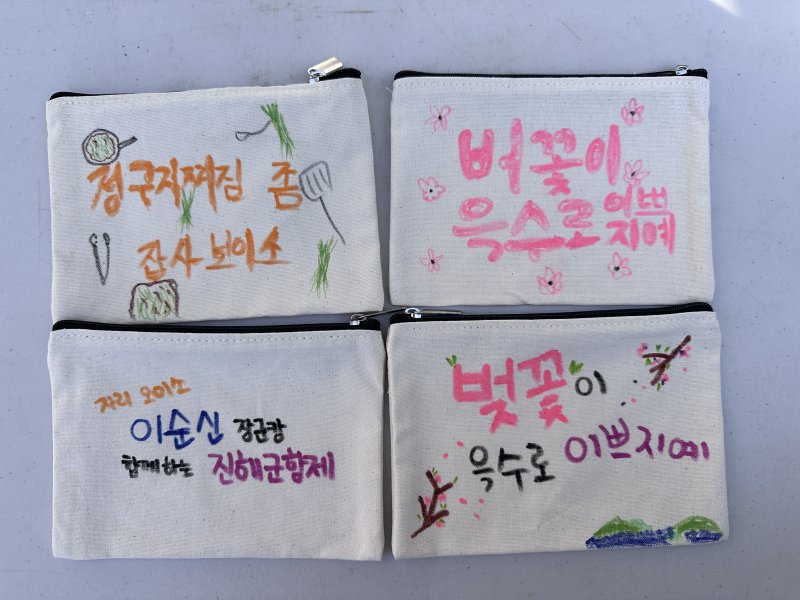 정구지찌짐 좀
잡사 보이소
벚꽃이
윽수로 이쁘
지예
자리 오이소
이순신 장군캉
함께하는 진해군항제
벚꽃이
윽수로 이쁘지예